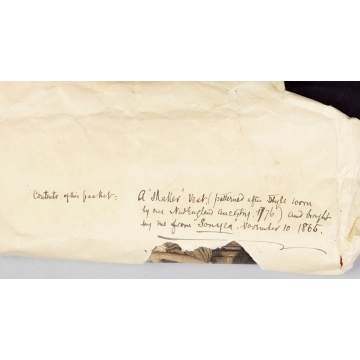 Contents of this packet:
A 'Shaker' Vest (patterned after style worn
by our New England ancestry, 1776) and brought
by me from Sonyea. November 10. 1866.